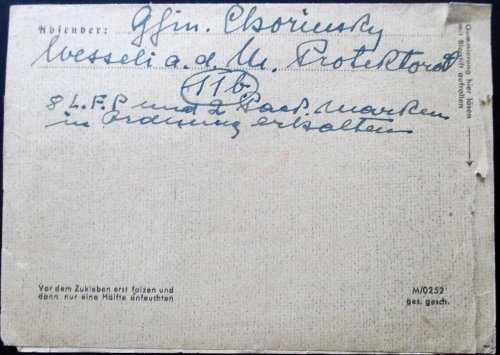 Absender: Ggfin. Chorinsky
Wesseli a. d. M. Protektorat
11b
8 L.F.P und 2 Pack. Marken
in Ordnung erhalten
Gummierung hier lösen
mit Bleistift aufrollen
Vor dem Zukleben erst falzen und
dann nur eine Hälfte anfeuchten
M/0252
ges. gesch.